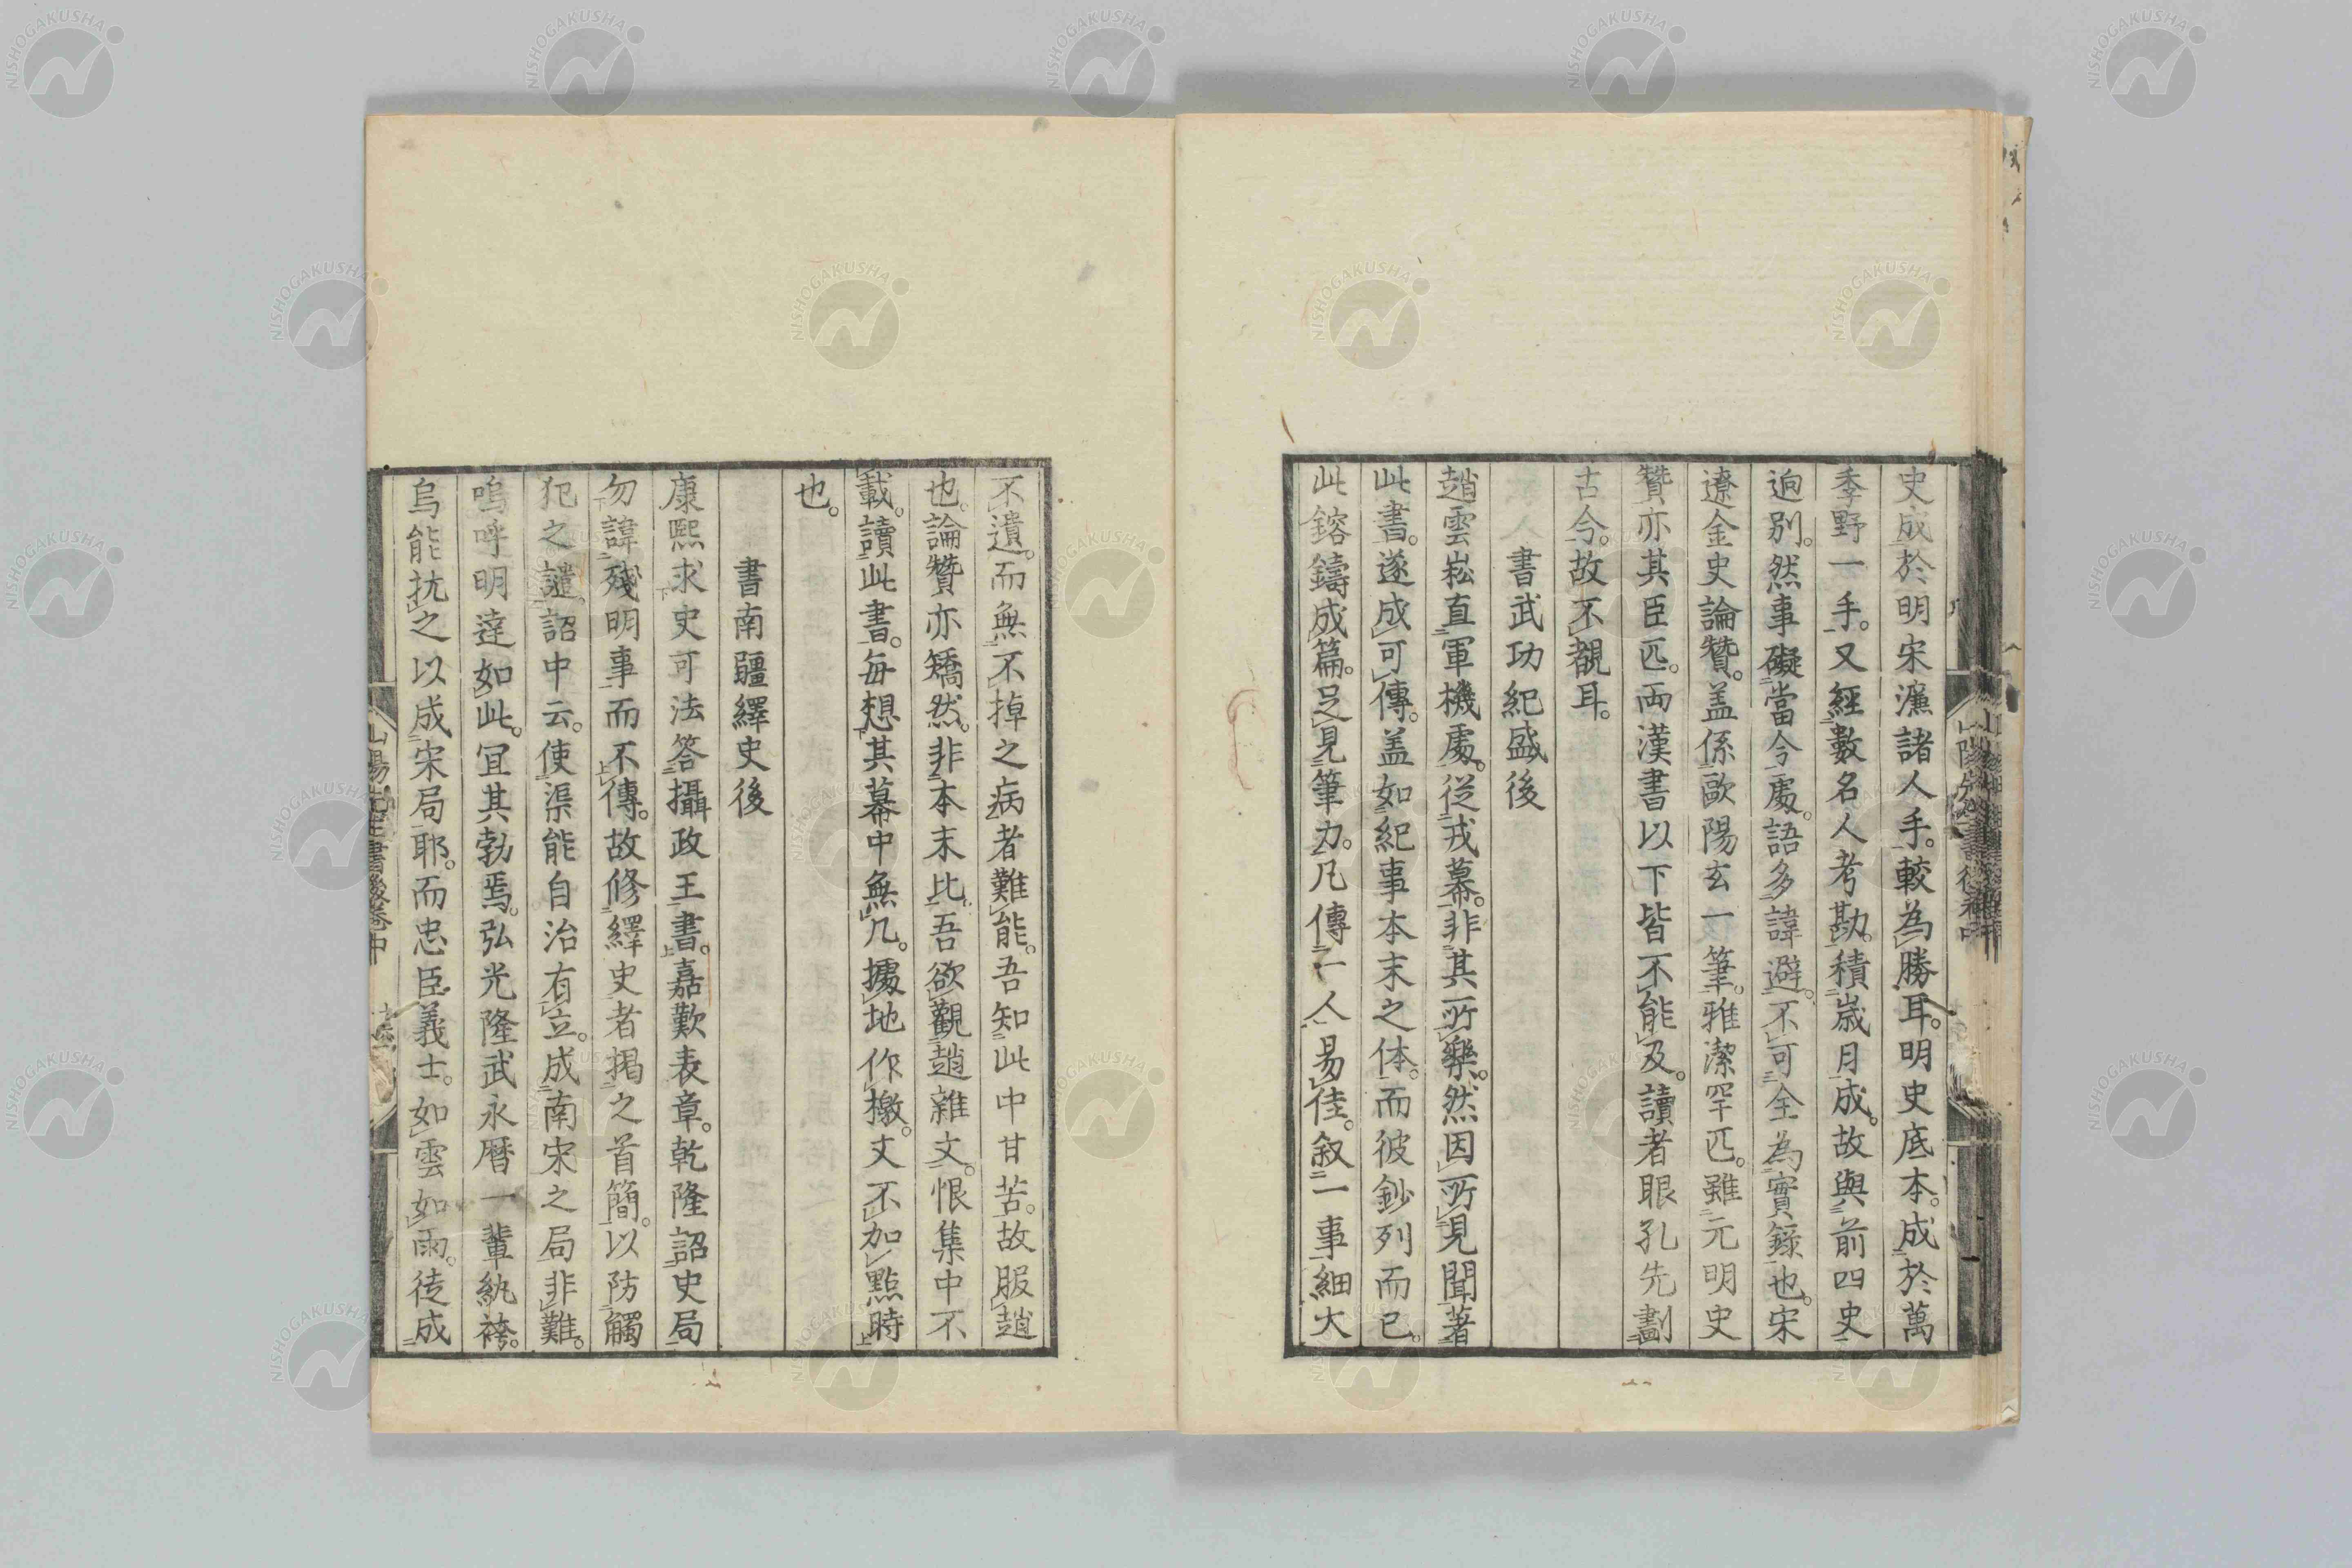 史成於明宋濂諸人手。較為勝耳。明史底本。成於萬
季野一手。又經數名人考勘。積歲月成。故與前四史
逈別。然事礙當今處。語多諱避。不可全為實錄也。宋
遼金史論贊。盖係歐陽玄一筆。雅潔罕匹。雖元明史
贊亦其臣匹。兩漢書以下皆不能及。讀者眼孔先劃
古今。故不覩耳。
書武功紀盛後
趙雲崧直軍機處。從戎幕。非其所樂。然因所見聞著
此書。遂成可傳。盖如紀事本末之体。而彼鈔列而已。
此鎔鑄成篇。足見筆力。凡傳一人易佳。叙一事細大
不遺。而無不掉之病者難能。吾知此中甘苦。故服趙
也。論贊亦矯然。非本末比。吾欲觀趙雜文。恨集中不
載。讀此書。每想其幕中無几。據地作檄。文不加點時
也。
書南疆繹史後
康熙求史可法答攝政王書。嘉歎表章。乾隆詔史局
勿諱殘明事而不傳。故修繹史者揭之首簡。以防觸
犯之譴。詔中云。使渠能自治有立。成南宋之局非難。
嗚呼明達如此。宜其勃焉。弘光隆武永曆一輩紈袴。
烏能抗之以成宋局耶。而忠臣義士。如雲如雨。徒成
山陽先生書後卷中